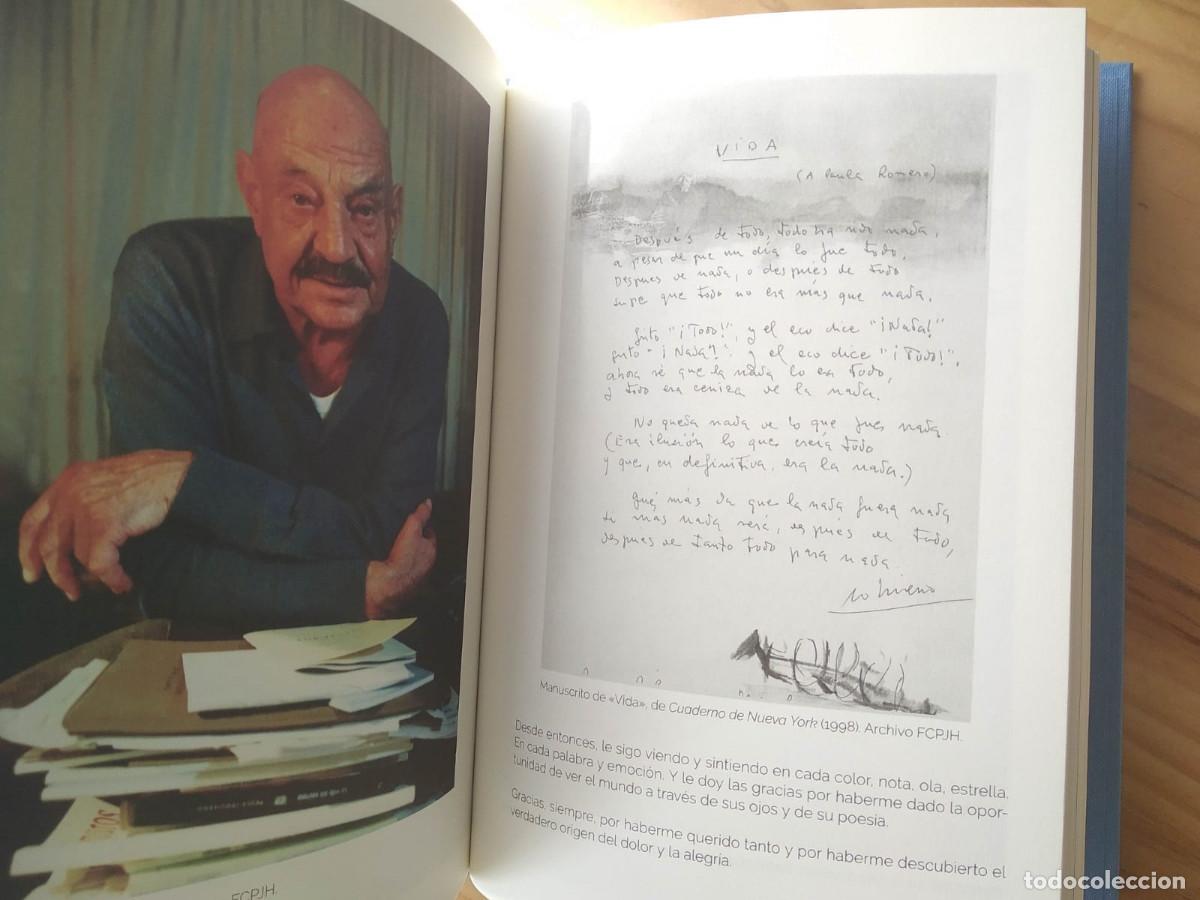 FCPJH.
VIDA
(A Paula Romero)
Después de todo, todo ha sido nada,
a pesar de que un día lo fue todo.
Después de nada, o después de todo
supe que todo no era más que nada.
Grito "¡Todo!", y el eco dice "¡Nada!"
Grito "¡Nada!", y el eco dice "¡Todo!".
ahora sé que la nada lo era todo,
y todo era ceniza de la nada.
No queda nada de lo que fue nada
(Era ilusión lo que creía todo
y que, en definitiva, era la nada.)
Qué más da que la nada fuera nada
si más nada será, después de todo,
después de tanto todo para nada.
Manuscrito de «Vida», de Cuaderno de Nueva York (1998). Archivo FCPJH.
Desde entonces, le sigo viendo y sintiendo en cada color, nota, ola, estrella.
En cada palabra y emoción. Y le doy las gracias por haberme dado la opor-
tunidad de ver el mundo a través de sus ojos y de su poesía.
Gracias, siempre, por haberme querido tanto y por haberme descubierto el
verdadero origen del dolor y la alegría.
todocoleccion